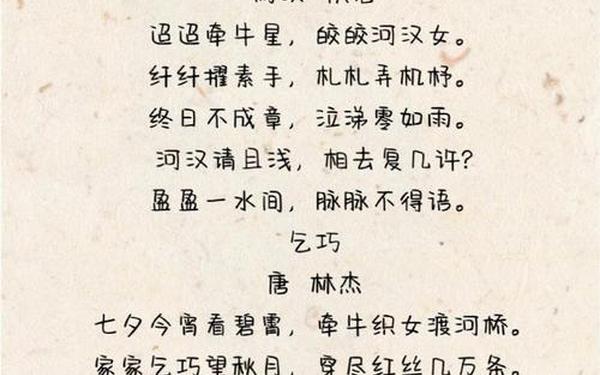 迢迢牵牛星，皎皎河汉女。
纤纤擢素手，札札弄机杼。
终日不成章，泣涕零如雨。
河汉请且浅，相去复几许？
盈盈一水间，脉脉不得语。
乞巧
唐 林杰
七夕今宵看碧霄，牵牛织女渡河桥。
家家乞巧望秋月，穿尽红丝几万条。